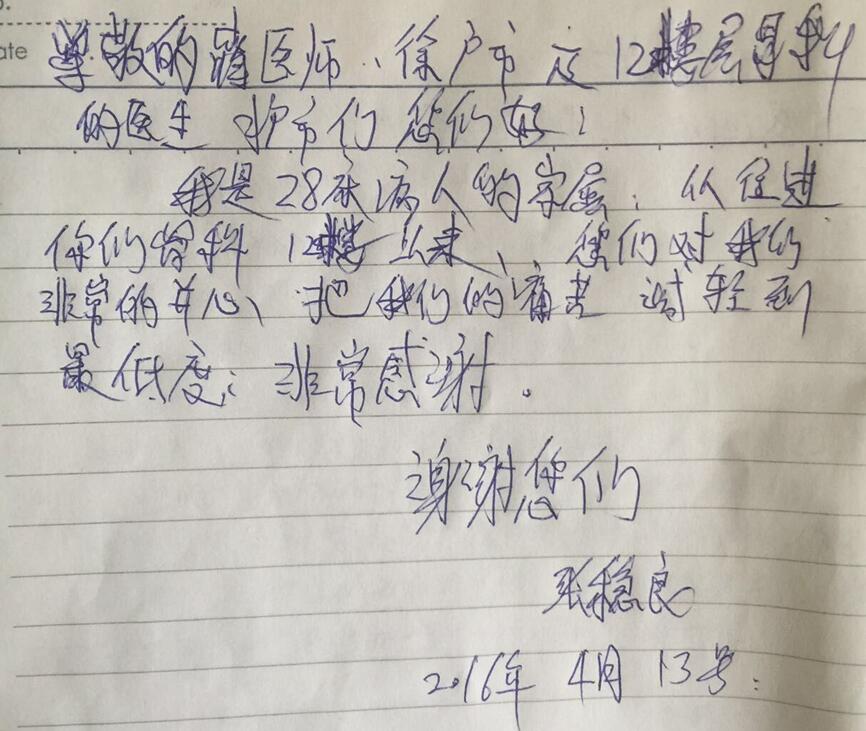 ate
尊敬的 医师、徐户市及12楼层骨科
的医生 护市们 您们好!
我是28床病人的家属、从住进
你们骨科12楼以来、您们对我们
非常的关心、把我们的痛苦 减轻到
最低度; 非常感谢.
谢谢您们
张稳良
2016年 4月 13号.